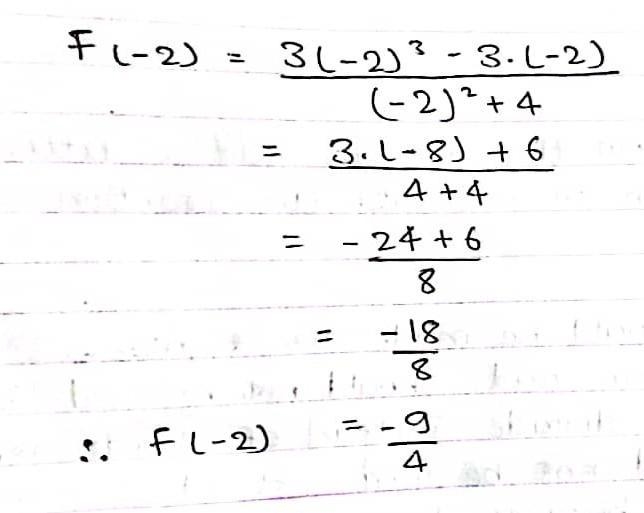 F(-2) = 3(-2)³ - 3.(-2) / (-2)² + 4
= 3.(-8) + 6 / 4 + 4
= -24 + 6 / 8
= -18 / 8
∴ F(-2) = -9 / 4